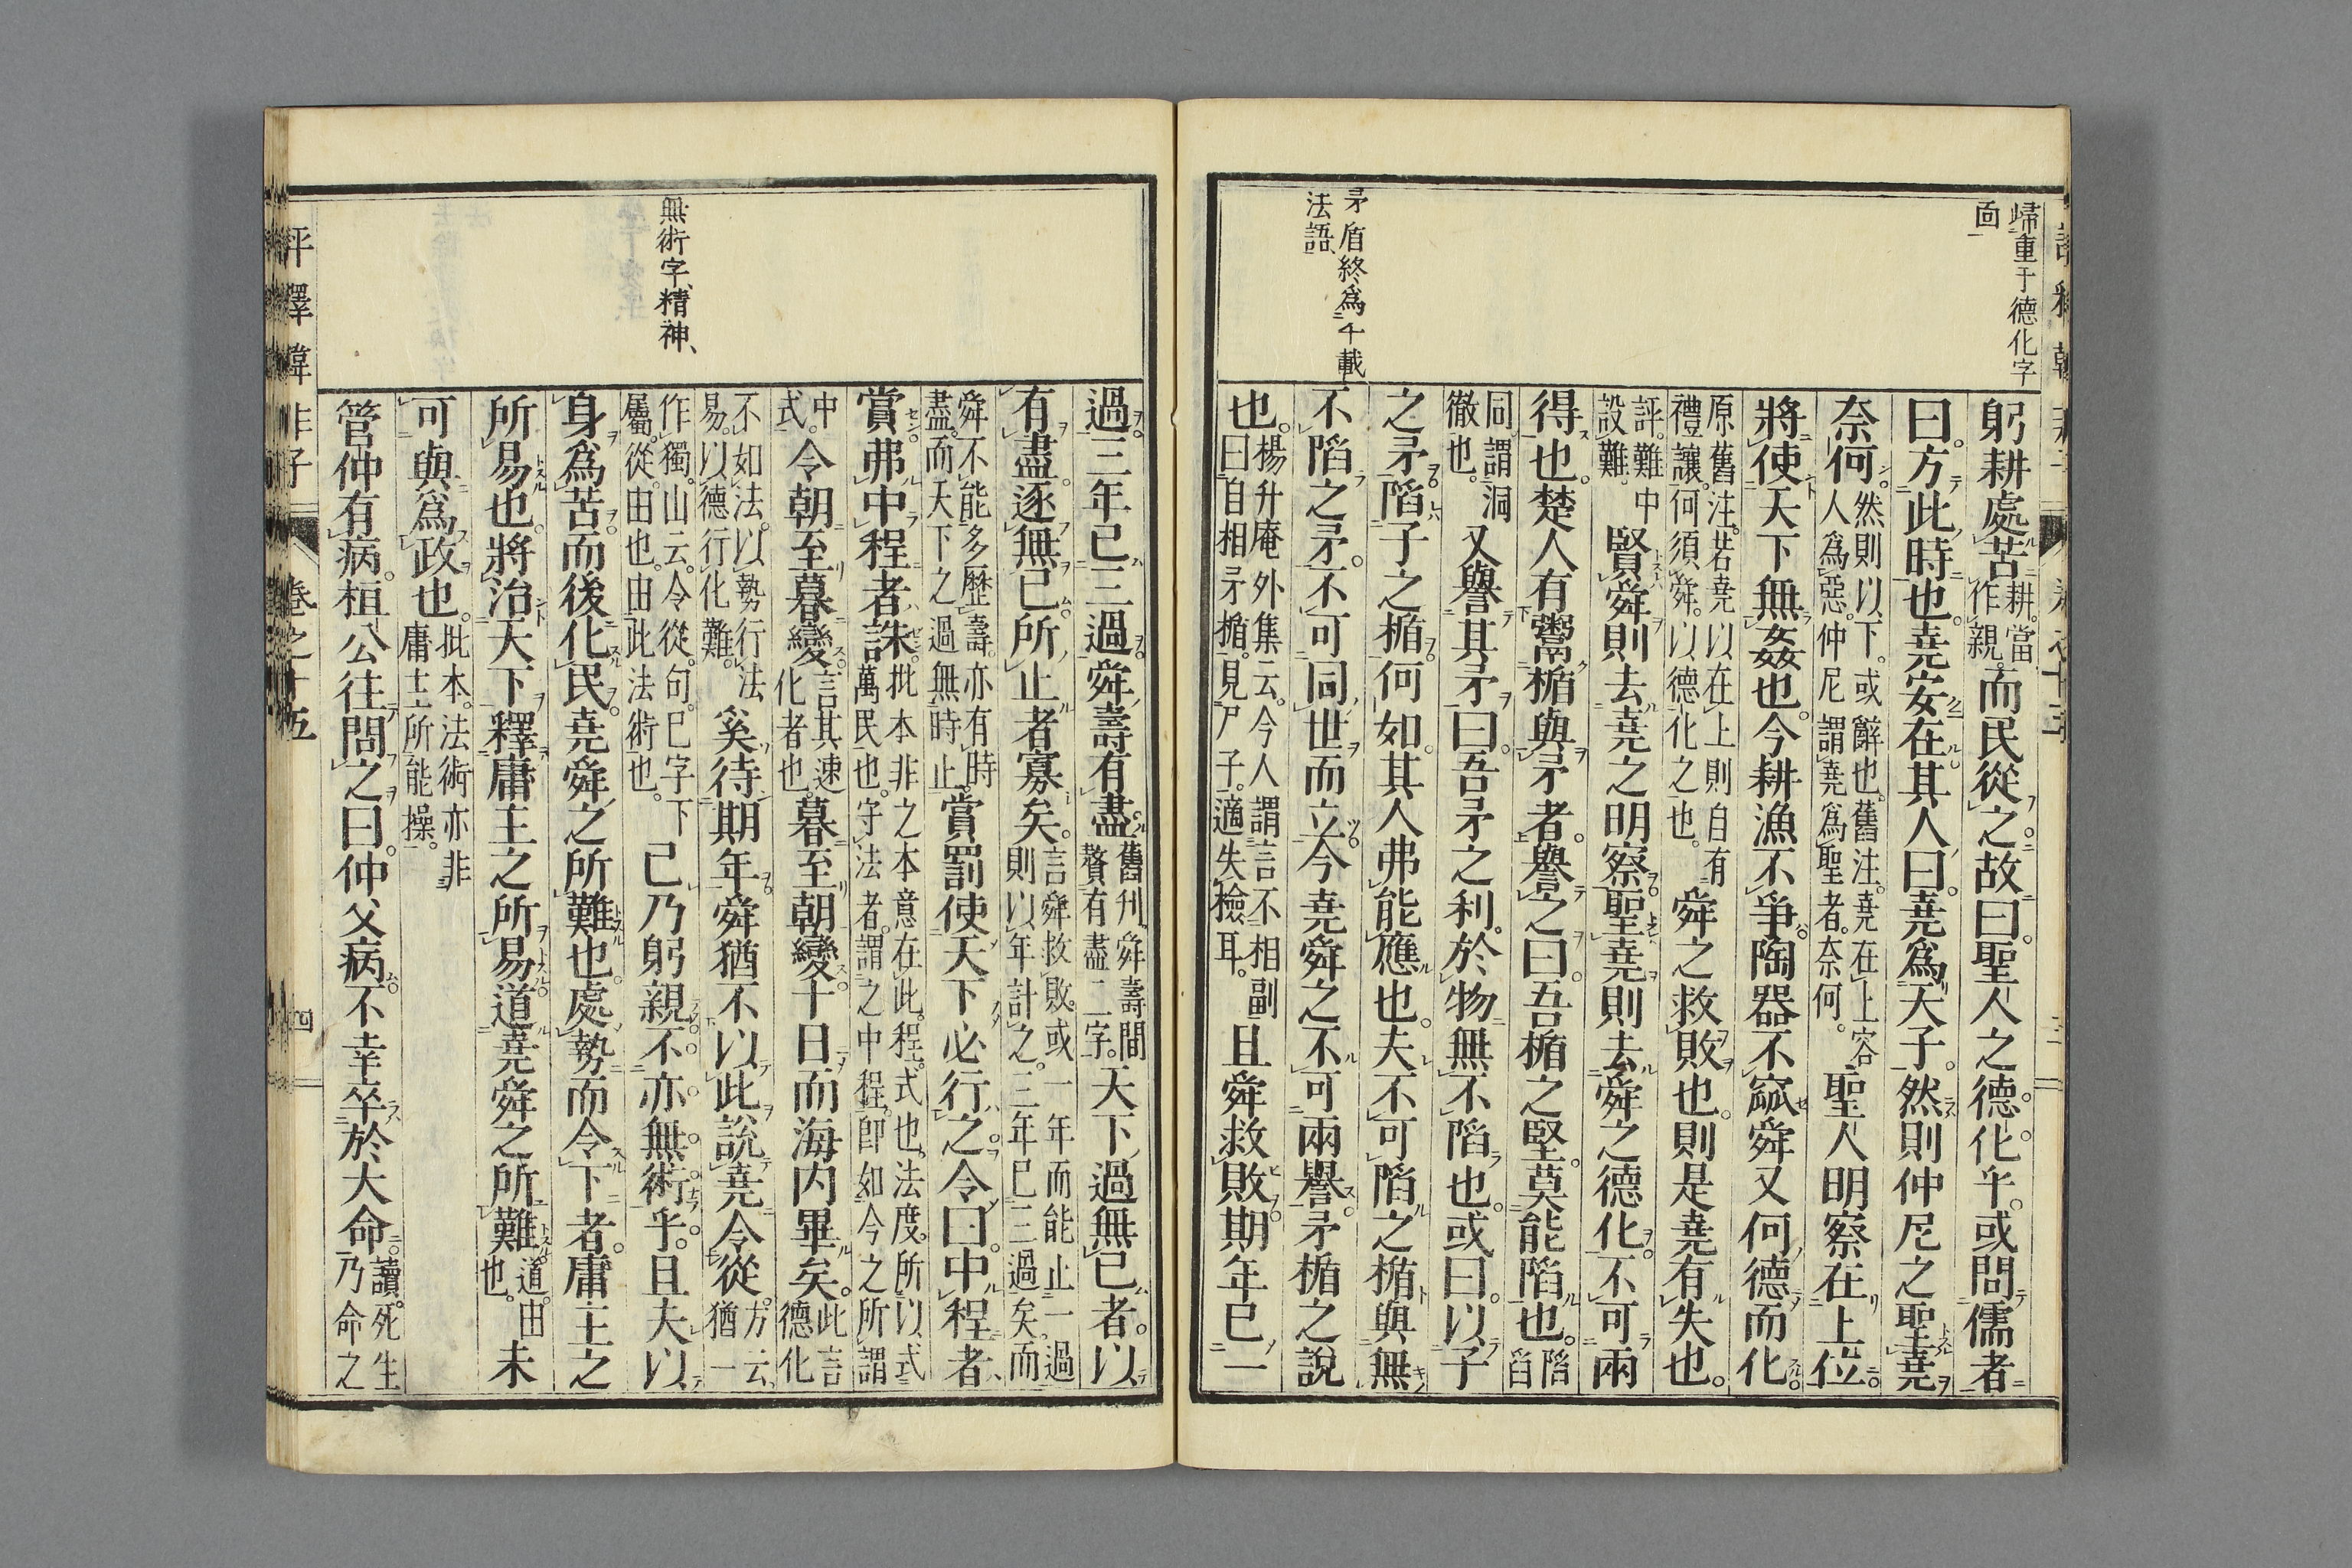 歸重于德化字
面
矛盾終爲千載
法語
躬耕處苦耕當作親而民從之故曰聖人之德化乎或問儒者
曰方此時也堯安在其人曰堯爲天子然則仲尼之聖堯
奈何然則以下或辭也舊注堯在上容人爲惡仲尼謂堯爲聖者奈何聖人明察在上位
將使天下無姦也今耕漁不爭陶器不窳舜又何德而化
原舊注若堯以在上則自有禮讓何須舜以德化之也舜之救敗也則是堯有失也
評難中設難賢舜則去堯之明察聖堯則去舜之德化不可兩
得也楚人有鬻楯與矛者譽之曰吾楯之堅莫能陷也陷舀
同謂洞徹也又譽其矛曰吾矛之利於物無不陷也或曰以子
之矛陷子之楯何如其人弗能應也夫不可陷之楯與無
不陷之矛不可同世而立今堯舜之不可兩譽矛楯之說
也楊升庵外集云今人謂言不相副曰自相矛楯見尸子適失撿耳且舜救敗期年已一
無術字精神
過三年已三過舜壽有盡舊刋舜壽間贅有盡二字天下過無已者以
有盡逐無已所止者寡矣言舜救敗或一年而能止一過則以年計之三年已三過矣而
舜不能多歷壽亦有時盡而天下之過無時止賞罰使天下必行之令曰中程者
賞弗中程者誅批本非之本意在此程式也法度所以式萬民也守法者謂之中程卽如今之所謂
中式令朝至暮變言其速化者也暮至朝變十日而海内畢矣此言德化
不如法以勢行法易以德行化難奚待期年舜猶不以此說堯令從方云猶一
作獨山云令從句已字下屬從由也由此法術也己乃躬親不亦無術乎且夫以
身爲苦而後化民堯舜之所難也處勢而令下者庸主之
所易也將治天下釋庸主之所易道堯舜之所難道由也未
可與爲政也批本法術亦非庸主所能操
管仲有病桓公往問之曰仲父病不幸卒於大命讀死生乃命之
評釋韓非子
卷之十五
四